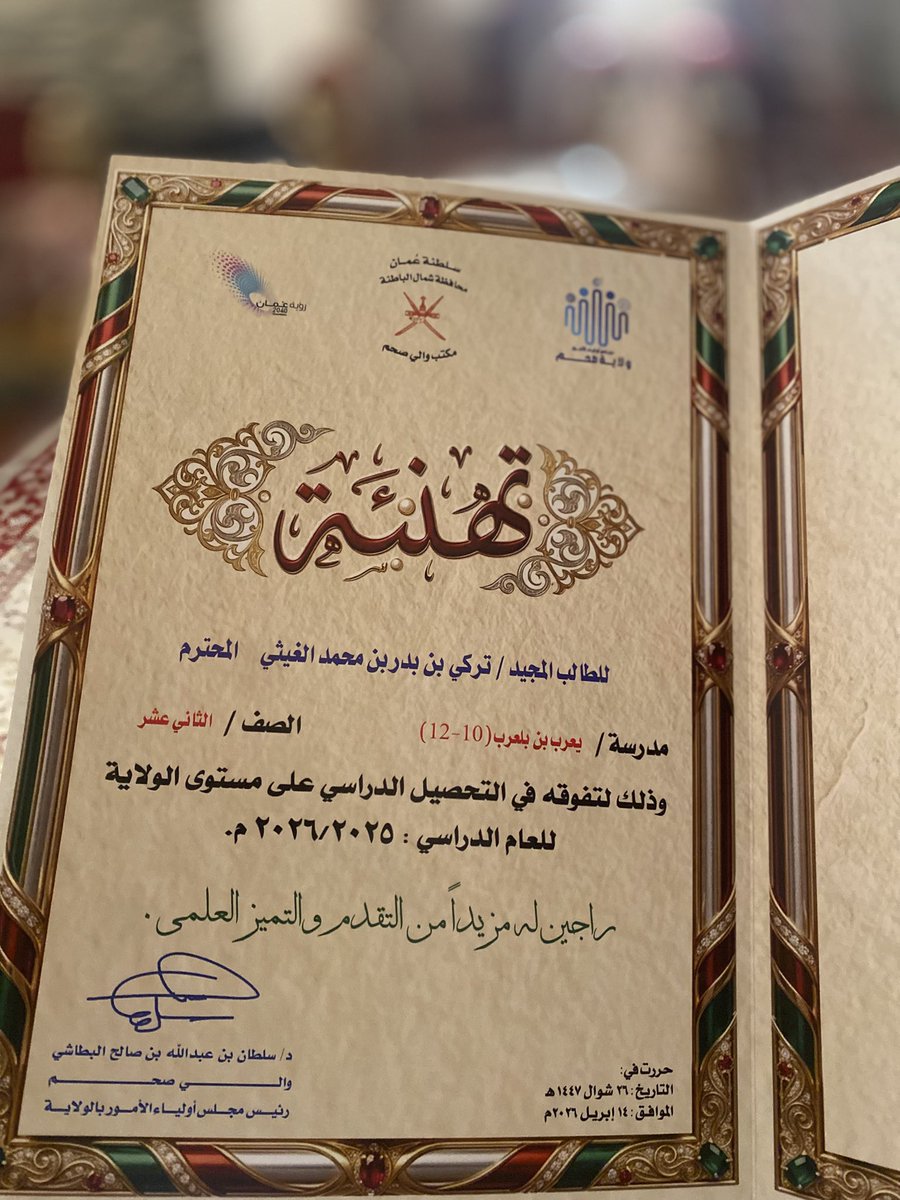 سلطنة عُمان
محافظة شمال الباطنة
مكتب والي صحم
رؤية عُمان
2040
ولاية صحم
تهنئة
للطالب المجيد / تركي بن بدر بن محمد الغيثي المحترم
مدرسة / يعرب بن بلعرب (10-12) الصف / الثاني عشر
وذلك لتفوقه في التحصيل الدراسي على مستوى الولاية
للعام الدراسي : ٢٠٢٦/٢٠٢٥ م.
راجين له مزيداً من التقدم والتميز العلمي .
د/ سلطان بن عبدالله بن صالح البطاشي
والـــي صحـــم
رئيس مجلس أولياء الأمور بالولاية
حررت في:
التاريخ: ٢٦ شوال ١٤٤٧هـ
الموافق: ١٤ إبريل ٢٠٢٦م